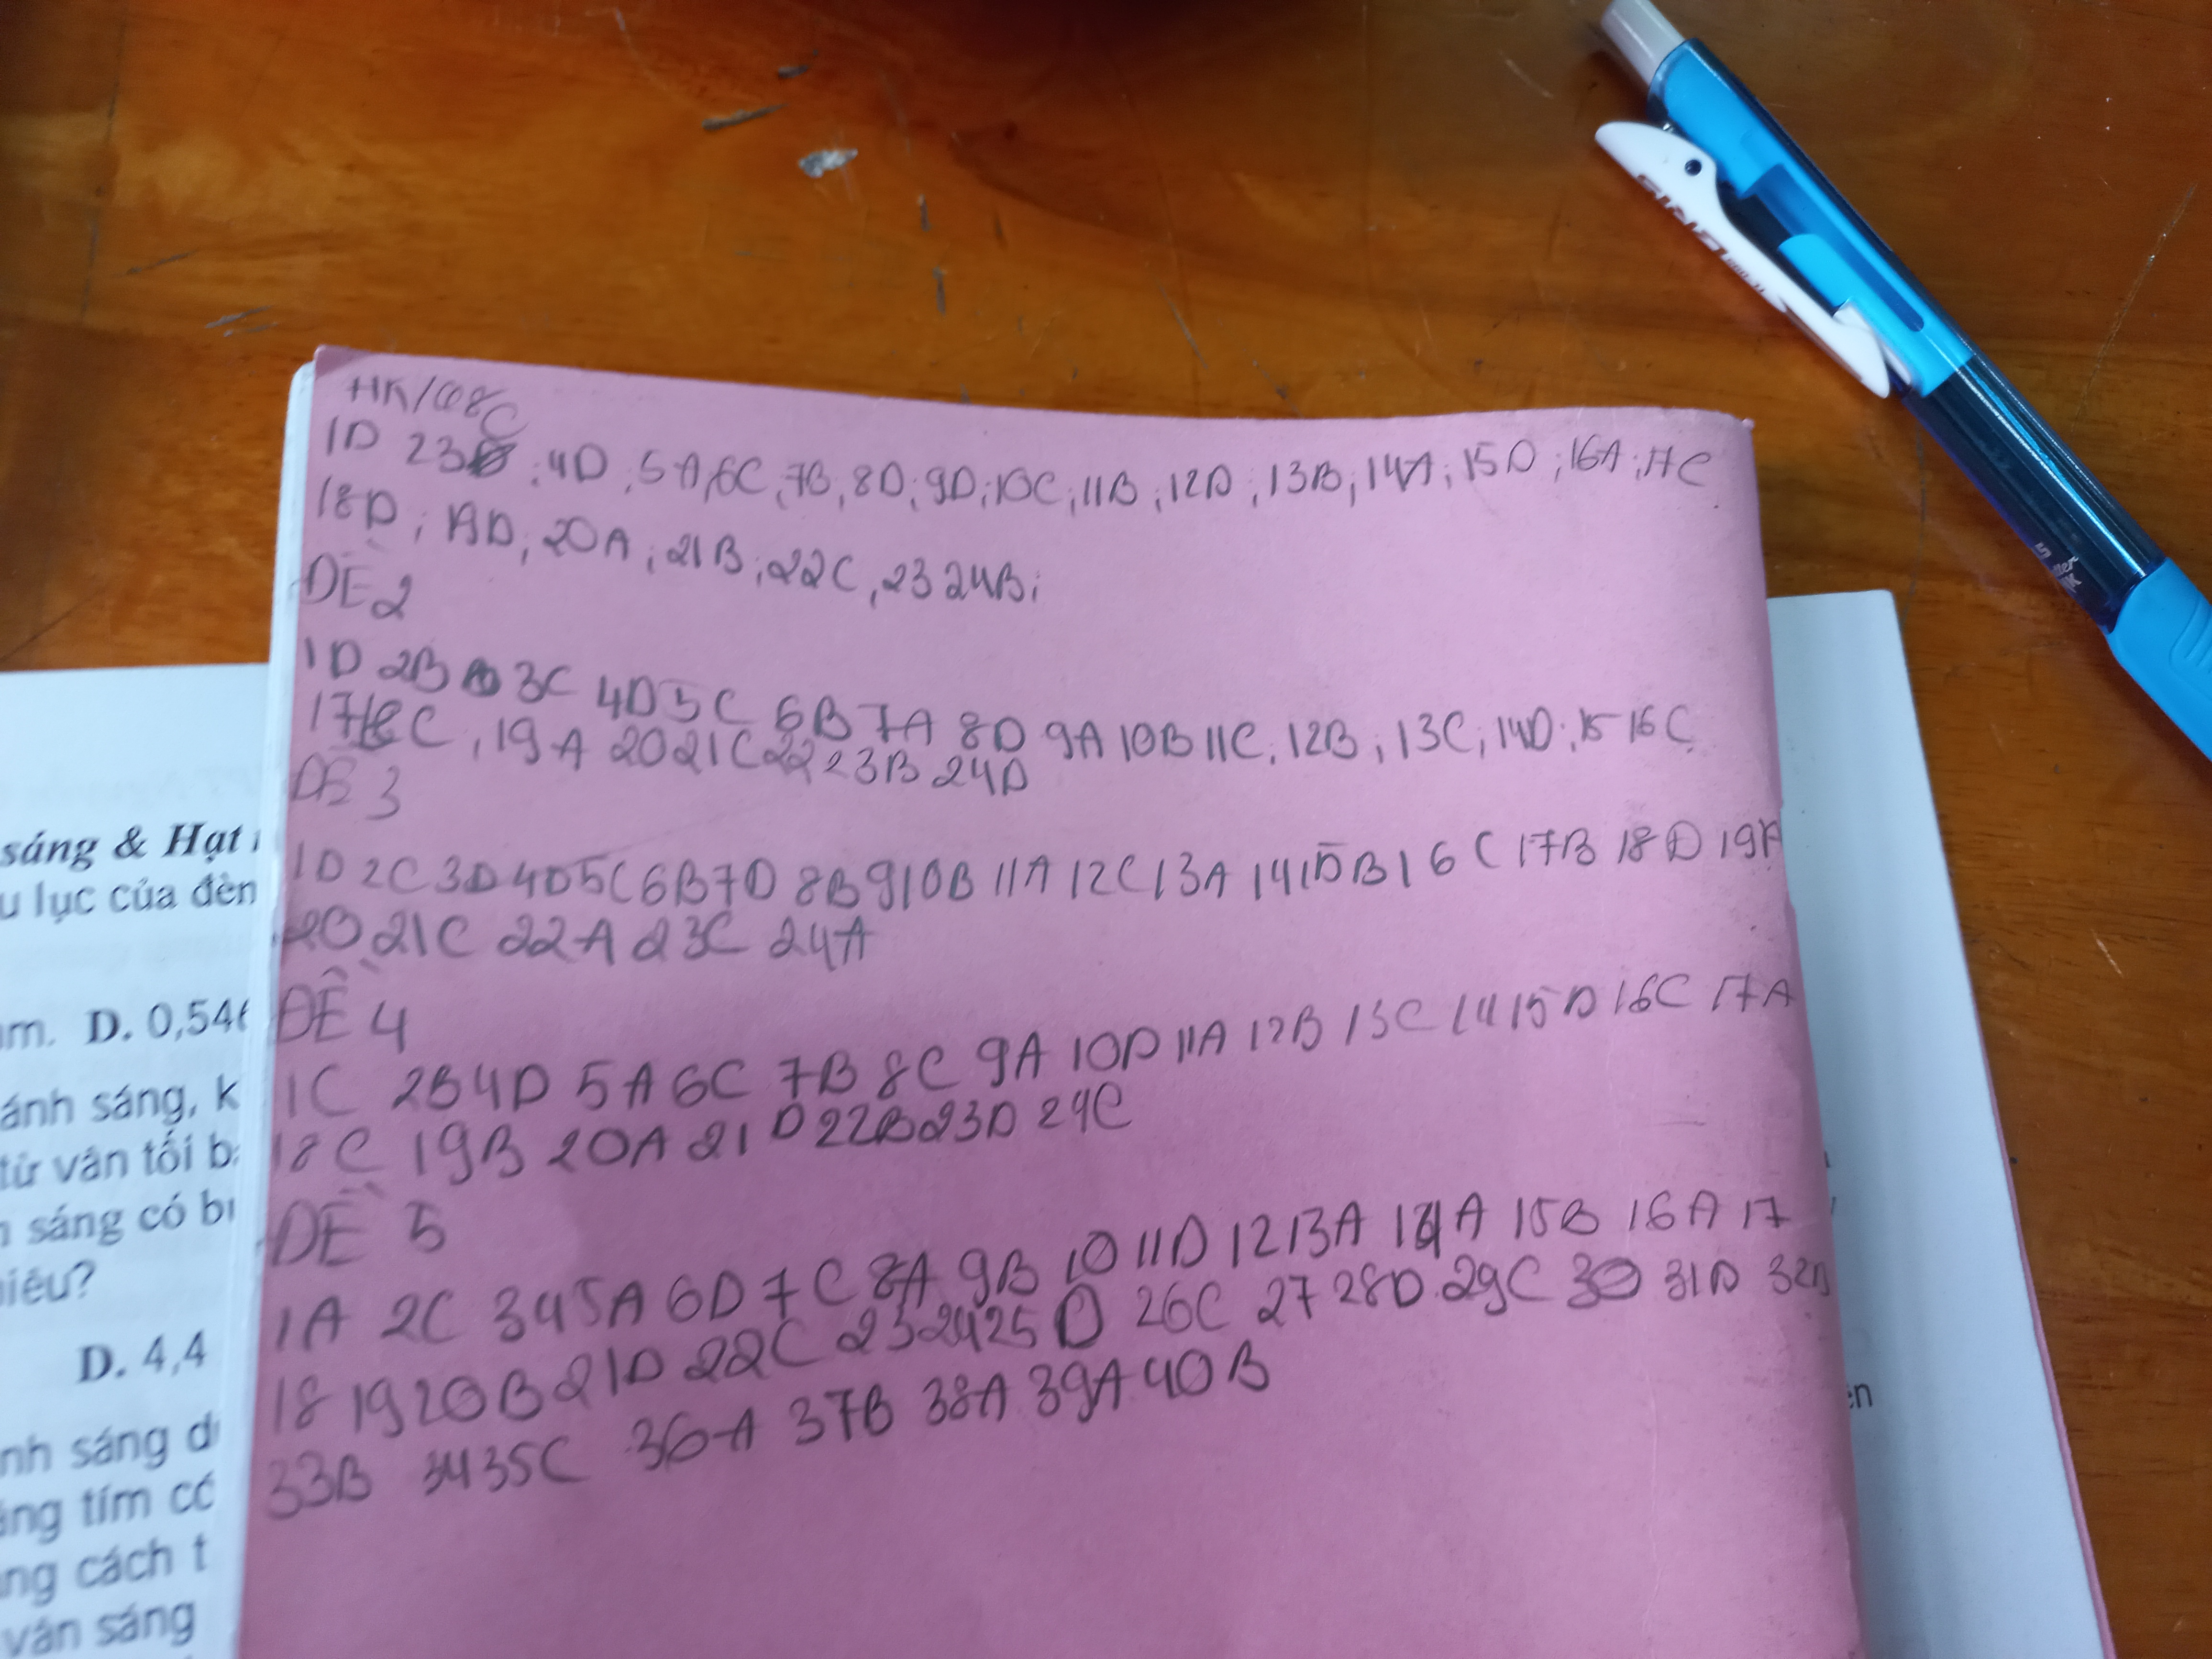 HK/108
1D 23C ; 4D ; 5A, 6C, 7B, 8D; 9D; 10C; 11B; 12D; 13B; 14A; 15D; 16A; 17C
18D; 19D; 20A; 21B; 22C, 23 24B;
ĐỀ 2
1D 2B 3C 4D 5C 6B 7A 8D 9A 10B 11C; 12B; 13C; 14D; 15 16C
17 18C, 19A 20 21C 22 23B 24D
ĐỀ 3
1D 2C 3D 4D 5C 6B 7D 8B 9 10B 11A 12C 13A 14 15B 16C 17B 18D 19A
20 21C 22A 23C 24A
ĐỀ 4
1C 2B 4D 5A 6C 7B 8C 9A 10D 11A 12B 13C 14 15D 16C 17A
18C 19B 20A 21D 22B 23D 24C
ĐỀ 5
1A 2C 3 4 5A 6D 7C 8A 9B 10 11D 12 13A 14A 15B 16A 17
18 19 20B 21D 22C 23 24 25D 26C 27 28D 29C 30 31D 32D
33B 34 35C 36A 37B 38A 39A 40B
sáng & Hạt
lục của đèn
m. D. 0,546
ánh sáng, k
từ vân tối b
sáng có bư
hiêu?
D. 4,4
nh sáng d
áng tím có
ng cách t
vân sáng